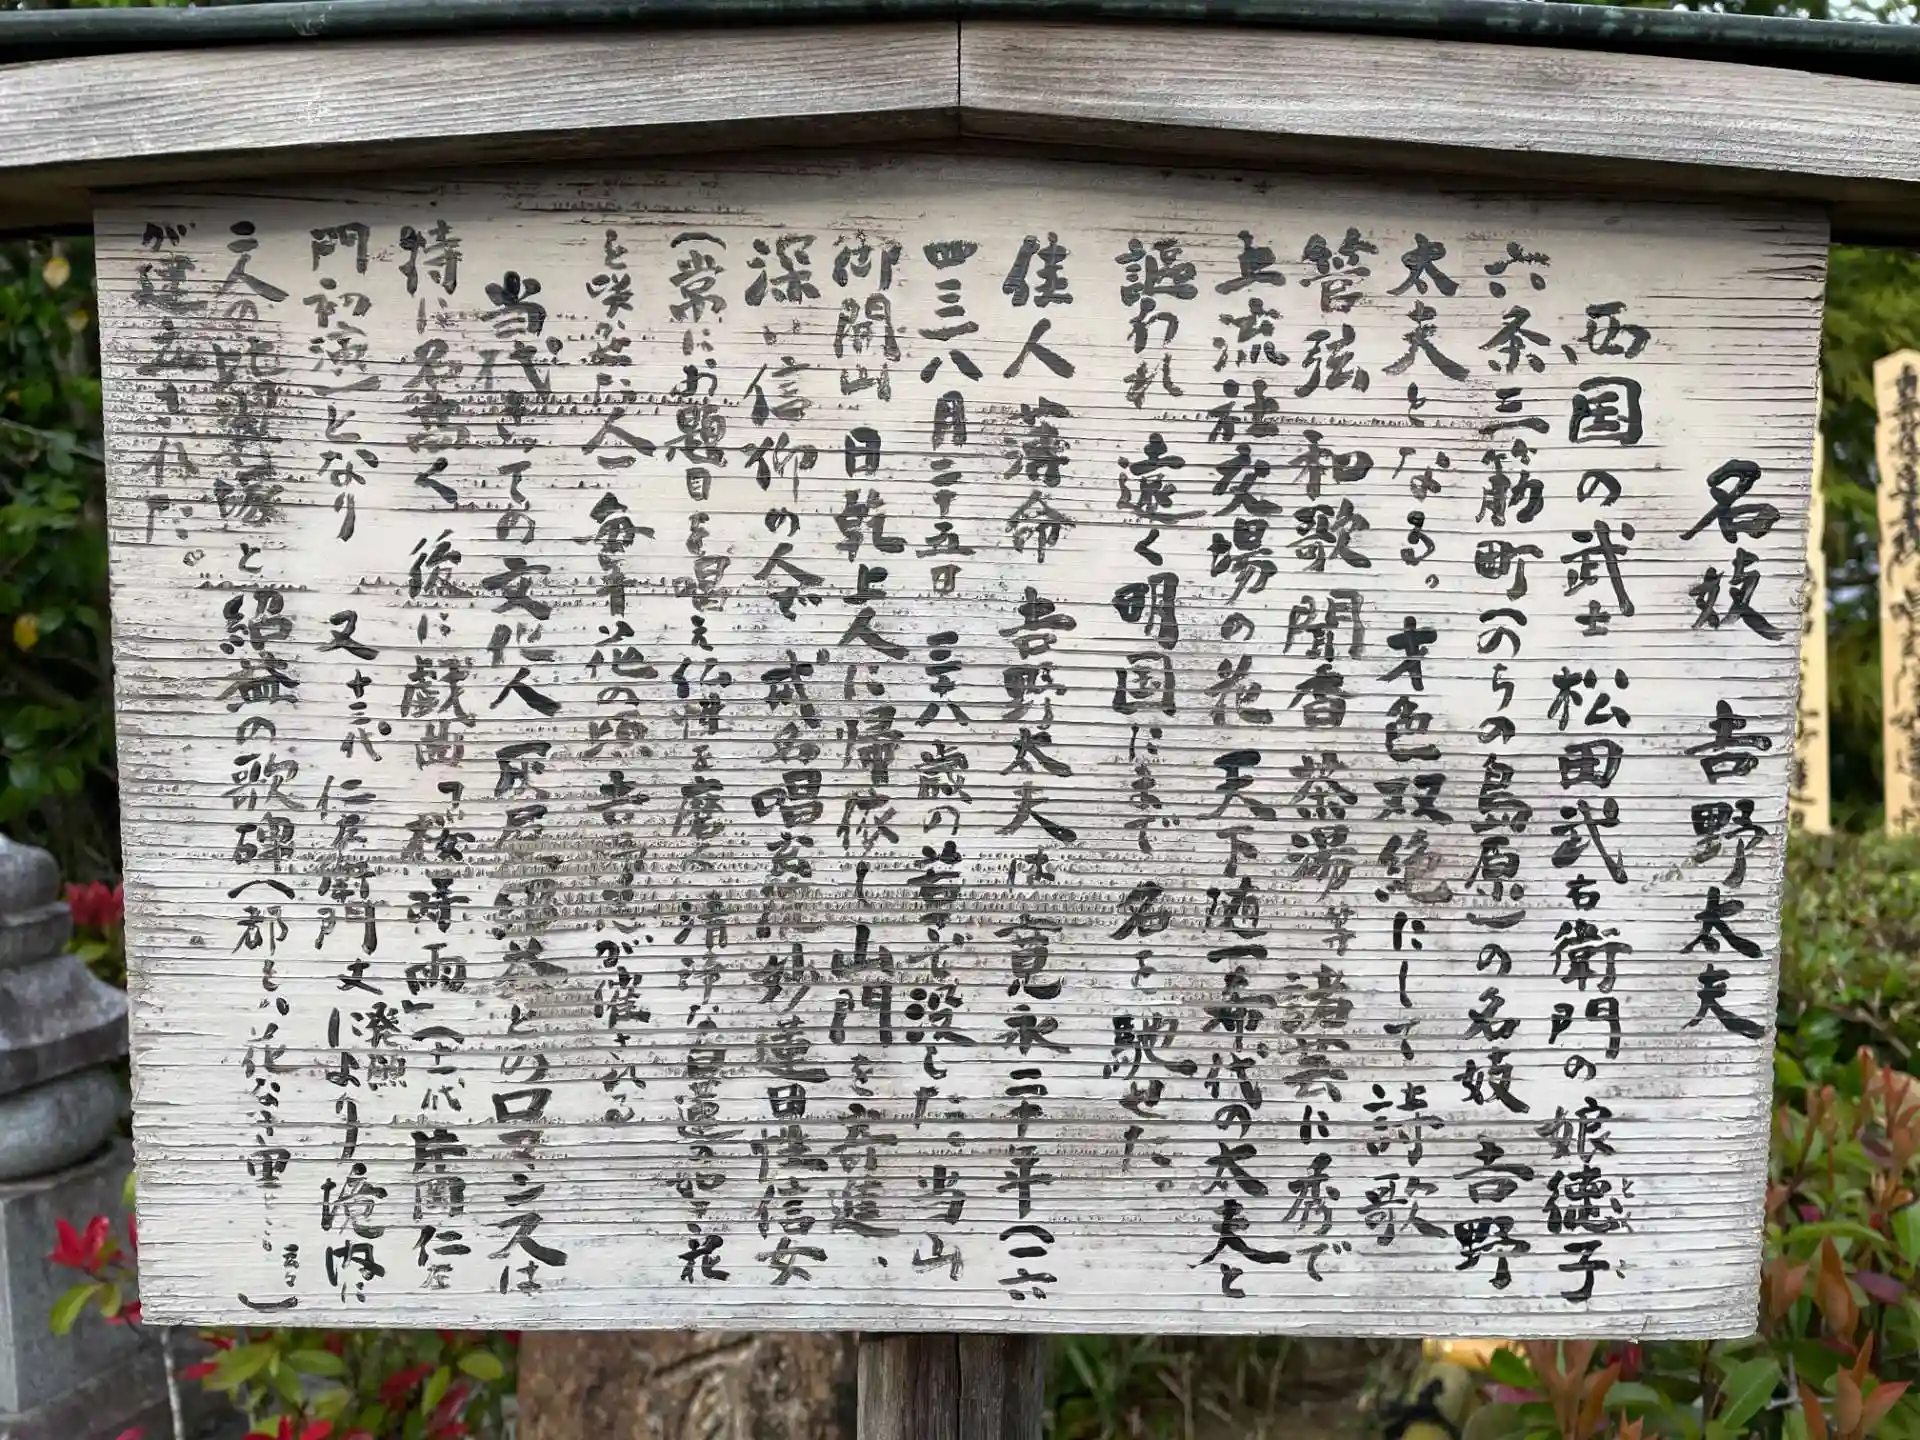 名妓 吉野太夫
西国の武士 松田武右衛門の娘徳子
とく こ
六条三筋町(のちの島原)の名妓 吉野
太夫となる。才色双絶にして 詩歌
管弦 和歌 聞香 茶湯等 諸芸に秀で
上流社交場の花 天下随一希代の太夫と
謳われ 遠く明国にまで 名を馳せた。
佳人薄命 吉野太夫は 寛永二十年(一六
四三)八月二十五日 三十八歳の若さで没した。当山
御開山 日乾上人に帰依し 山門を寄進、
深い信仰の人で 戒名 唱玄院妙蓮日性信女
(常にお題目を唱え 仏性を磨き 清浄な白蓮の如き花
を咲かせた人) 毎年花の頃 吉野 が催される
当代きっての文化人 灰屋紹益とのロマンスは
特に名高く 後に戯曲「桜時雨」(十一代 片岡仁左
門初演)となり 又 十三代 仁左衛門丈 発願により 境内に
二人の比翼塚と 紹益の歌碑(都をば花なき里に 云々)
が建立された。